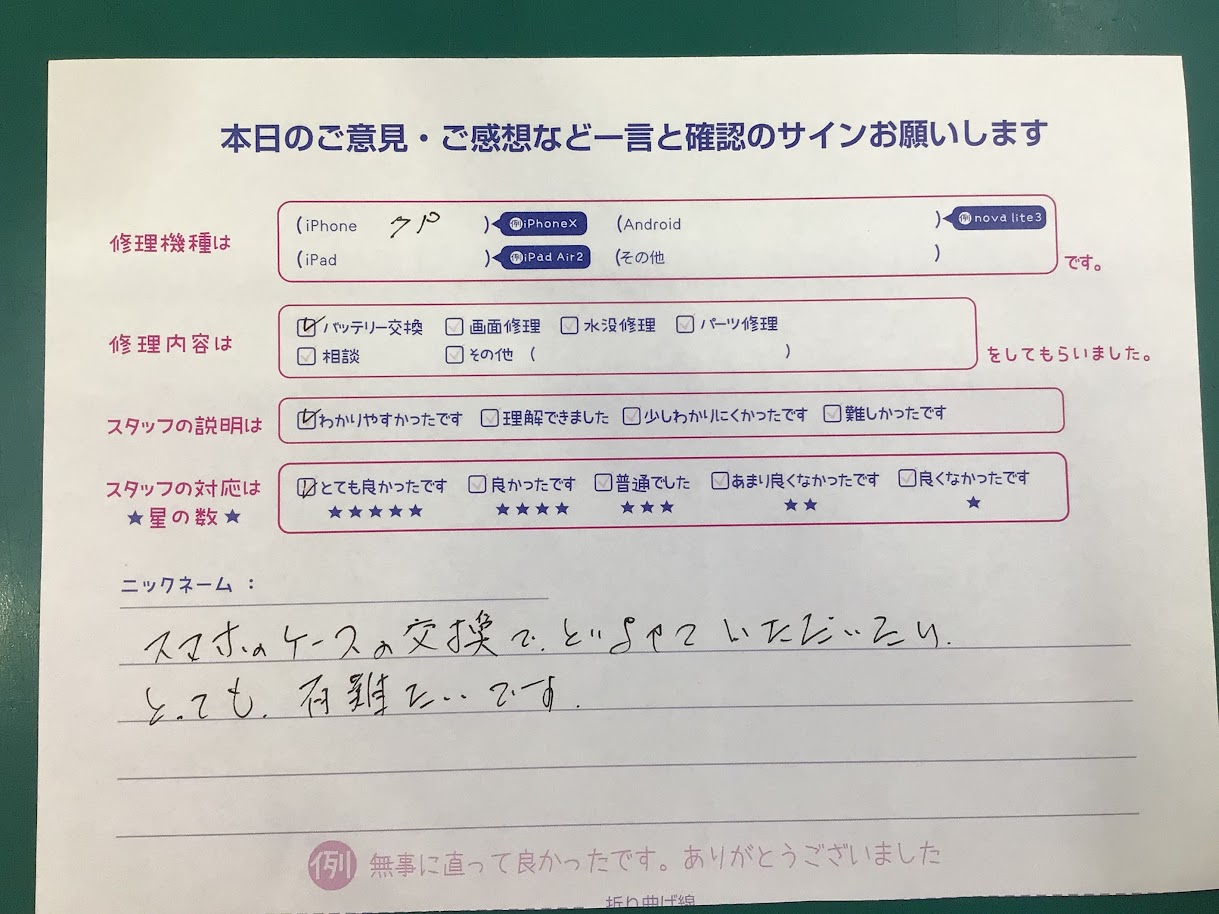 本日のご意見・ご感想など一言と確認のサインお願いします
修理機種は
(iPhone 7P ) 例iPhoneX (Android ) 例nova lite3
(iPad ) 例iPad Air2 (その他 )
です。
修理内容は
バッテリー交換 画面修理 水没修理 パーツ修理
相談 その他 ( )
をしてもらいました。
スタッフの説明は
わかりやすかったです 理解できました 少しわかりにくかったです 難しかったです
スタッフの対応は
★星の数★
とても良かったです 良かったです 普通でした あまり良くなかったです 良くなかったです
★★★★★ ★★★★ ★★★ ★★ ★
ニックネーム：
スマホのケースの交換で、 いただいたり、
とっても、有難たいです。
例 無事に直って良かったです。ありがとうございました
折り曲げ線